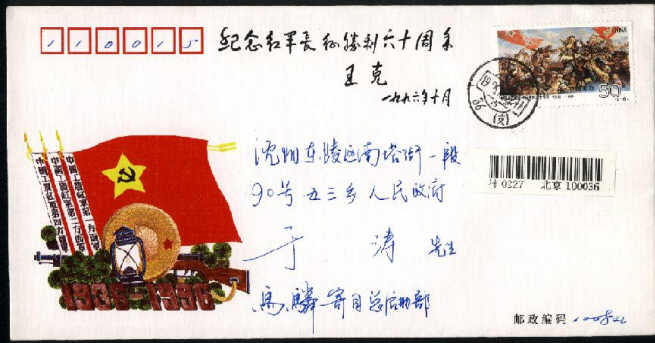 110015
纪念红军长征胜利六十周年
王克
一九九六年十月
50
沈阳东陵区南塔街一段
90号五三乡人民政府
于涛 先生
0227 北京 100036
中国工农红军第一方面军
中国工农红军第二方面军
中国工农红军第四方面军
1936-1996
邮政编码